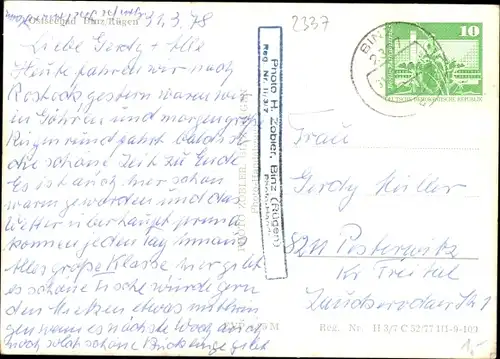 Ostseebad Binz/Rügen
31.3.78
2337
Liebe Gerdy + Alle
Heute fahren wir nach
Rostock gestern waren wir
in Göhren und morgen große
Rügenrundfahrt bald ist
die schöne Zeit zu Ende
Es ist auch hier schon
warm geworden und das
Wetter überhaupt prima
können jeden Tag hinaus
Alles große Klasse hier gibt
es schöne Fische würde gern
den etwas mitbrin
gen wenn es nächste Woche auch
noch solch schöne gibt
Photo H. Zobler, Binz (Rügen)
Reg. Nr. II/37
BINZ
10
DEUTSCHE DEMOKRATISCHE REPUBLIK
Frau
Gerdy Müller
8211 Possterwitz
Kr. Freital
Reg. Nr. II 3/7 C 52/77 III-9-109
1,-